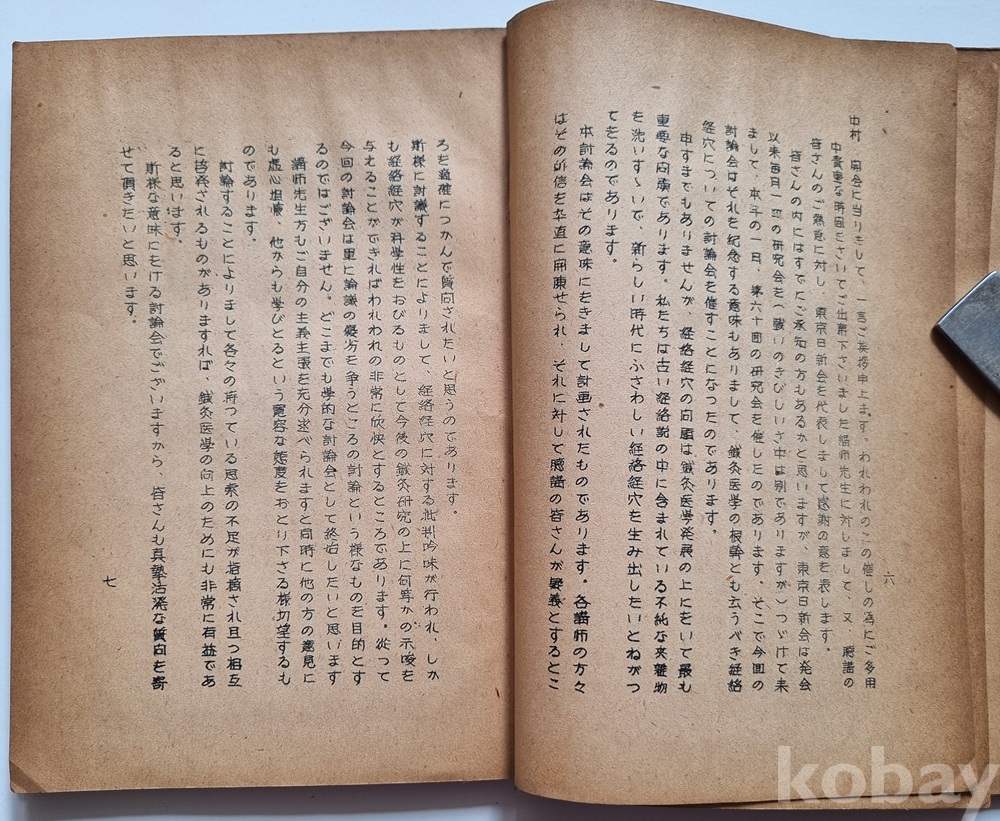 六
中村　開会に当りまして、一言ご挨拶申上ます。われわれのこの催しの為にご多用
中貴重な時間をさいてご出席下さいました講師先生に対しまして、又　聴講の
皆さんのご熱意に対し、東京日新会を代表しまして感謝の意を表します。
皆さんの内にはすでにご承知の方もあるかと思いますが、東京日新会は発会
以来毎月一回の研究会を（戦いのきびしいさ中は別でありますが）つゞけて来
まして、本年の一日、第六十回の研究会を催したのであります。そこで今回の
討論会はそれを紀念する意味もありまして、鍼灸医学の根幹とも云うべき経絡
経穴についての討論会を催すことになったのであります。
申すまでもありませんが、経絡経穴の問題は鍼灸医学発展の上にをいて最も
重要な問題であります。私たちは古い経絡説の中に含まれている不純な夾雑物
を洗いすゝいで、新らしい時代にふさわしい経絡経穴を生み出したいとねがつ
てをるのであります。
本討論会はその意味にをきまして計画されたものであります。各講師の方々
はその所信を卒直に開陳せられ、それに対して聴講の皆さんが疑義とするとこ
ろを適確につかんで質問されたいと思うのであります。
斯様に討議することによりまして、経絡経穴に対する批判吟味が行われ、しか
も経絡経穴が科学性をおびるものとして今後の鍼灸研究の上に何等かの示唆を
与えることができればわれわれの非常に欣快とするところであります。從つて
今回の討論会は単に論議の優劣を争うところの討論という様なものを目的とす
るのではございません。どこまでも学的な討論会として終始したいと思います
講師先生方もご自分の主義主張を充分述べられますと同時に他の方の意見に
も虚心坦懐、他からも学びとるという寛容な態度をおとり下さる様切望するも
のであります。
討論することによりまして各々の持つている思索の不足が指摘され且つ相互
に啓発されるものがありますれば、鍼灸医学の向上のためにも非常に有益であ
ると思います。
斯様な意味にをける討論会でございますから、皆さんも真摯活溌な質問を寄
せて頂きたいと思います。
七
kobay